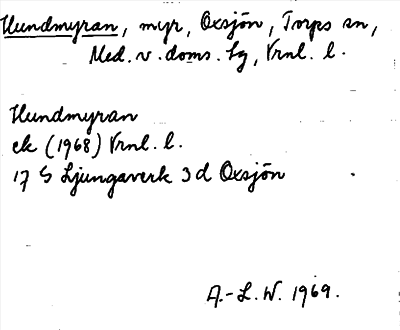 Hundmyran, myr, Oxsjön, Torps sn,
Med. v. doms. hg, Vrnl. l.
Hundmyran
ek (1968) Vrnl. l.
17 G Ljungaverk 3 d Oxsjön
A.-L. W. 1969.